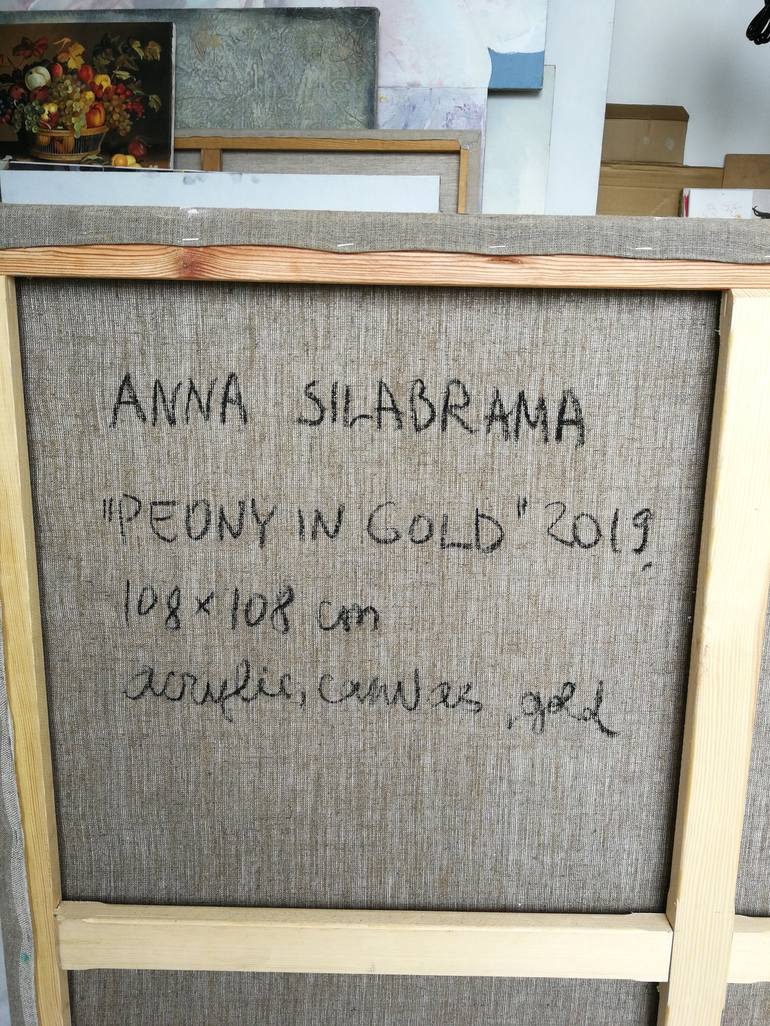 ANNA SILABRAMA
"PEONY IN GOLD" 2019.
108 x 108 cm
acrylic, canvas, gold